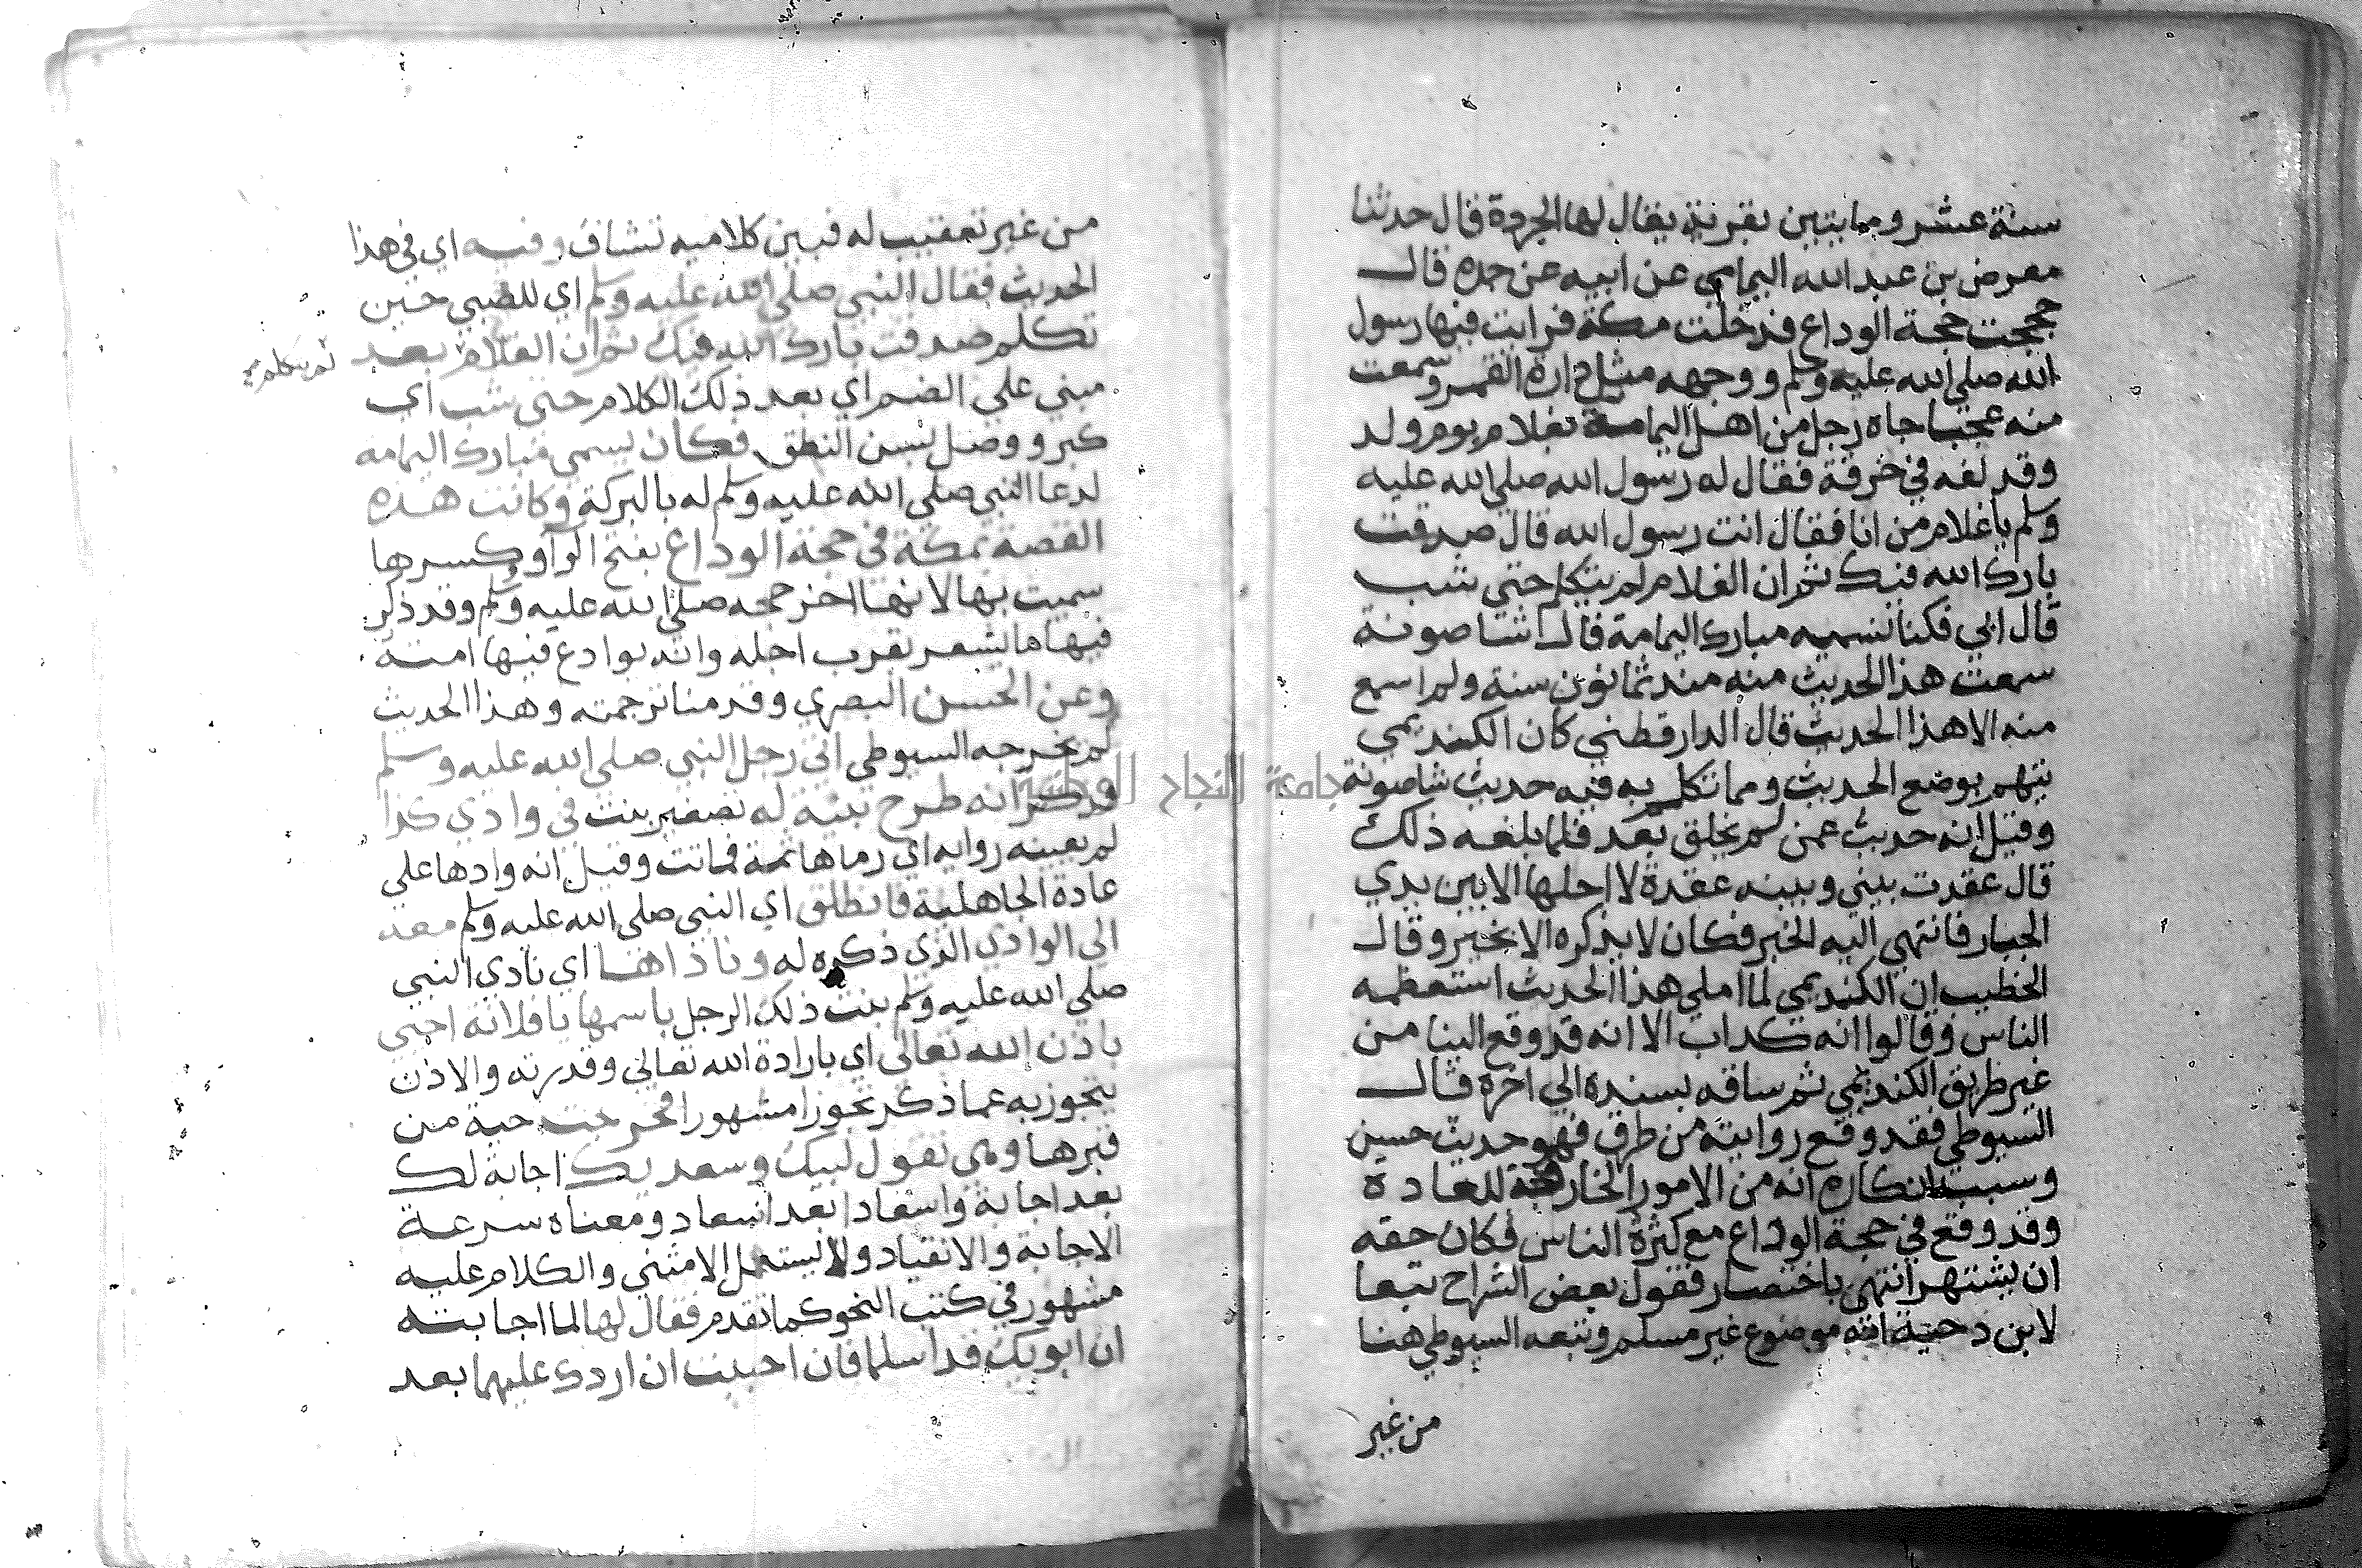 سنة عشر ومايتين بقرية يقال لها الجردة قال حدثنا
معرض بن عبد الله اليمامي عن ابيه عن جده قال
حججت حجة الوداع فدخلت مكة فرايت فيها رسول
الله صلى الله عليه وسلم ووجهه مثل دارة القمر وسمعت
منه عجبا جاه رجل من اهل اليمامة بغلام يوم ولد
وقد لفه في خرقة فقال له رسول الله صلى الله عليه
وسلم يا غلام من انا فقال انت رسول الله قال صدقت
بارك الله فيك ثم ان الغلام لم يتكلم حتى شب
قال ابي فكنا نسميه مبارك اليمامة قال شاصونة
سمعت هذا الحديث منه منذ ثمانون سنة ولم اسمع
منه الا هذا الحديث قال الدارقطني كان الكديمي
يتهم بوضع الحديث ومما تكلم به فيه حديث شاصونة
وقيل انه حديث عمن لم يخلق بعد فلما بلغه ذلك
قال عقدت بيني وبينه عقدة لا احلها الا بين يدي
الجبار فانتهى اليه الخبر فكان لا يذكره الا بخير وقال
الخطيب ان الكديمي لما املى هذا الحديث استعظمه
الناس وقالوا انه كداب الا انه قد وقع الينا من
غير طريق الكديمي ثم ساقه بسنده الى اخره قال
السيوطي فقد وقع روايته من طرق فهو حديث حسن
وسبب انكاره انه من الامور الخارقة للعادة
وقد وقع في حجة الوداع مع كثرة الناس فكان حقه
ان يشتهر انتهى باختصار فقول بعض الشراح تبعا
لابن دحية انه موضوع غير مسلم وتبعه السيوطي هنا
من غير
من غير تعقيب له فبين كلاميه تشاف وفيه اي في هذا
الحديث فقال النبي صلى الله عليه وسلم اي للصبي حين
تكلم صدقت بارك الله فيك ثم ان الغلام بعد
لم يتكلم
مبني على الضم اي بعد ذلك الكلام حتى شب اي
كبر ووصل لسن النطق فكان يسمى مبارك اليمامه
لدعا النبي صلى الله عليه وسلم له بالبركة وكانت هذه
القصه بمكة في حجة الوداع بفتح الواو وكسرها
سميت بها لانها اخر حجه صلى الله عليه وسلم وقد ذكر
فيها ما يشعر بقرب اجله وانه يوادع فيها امته
وعن الحسن البصري وقدمنا ترجمته وهذا الحديث
لم يخرجه السيوطي اتى رجل النبي صلى الله عليه وسلم
فذكر انه طرح بنيه له تصغير بنت في وادي كذا
لم يعينه روايه اي رماها ثمة فماتت وقيل انه وادها على
عادة الجاهلية فانطلق اي النبي صلى الله عليه وسلم معه
الى الوادي الذي ذكره له وناداها اي نادي النبي
صلى الله عليه وسلم بنت ذلك الرجل باسمها يا فلانة احيي
باذن الله تعالى اي بارادة الله تعالى وقدرته والاذن
يتجوز به عما ذكر تجوزا مشهورا فخرجت حية من
قبرها وهي تقول لبيك وسعديك اجابة لك
بعد اجابة واسعادا بعد اسعاد ومعناه سرعة
الاجابة والانقياد ولا يستعمل الا مثنى والكلام عليه
مشهور في كتب النحو كما تقدم فقال لها لما اجابته
ان ابويك قد اسلما فان احببت ان اردك عليهما بعد
جامعة النجاح الوطنية